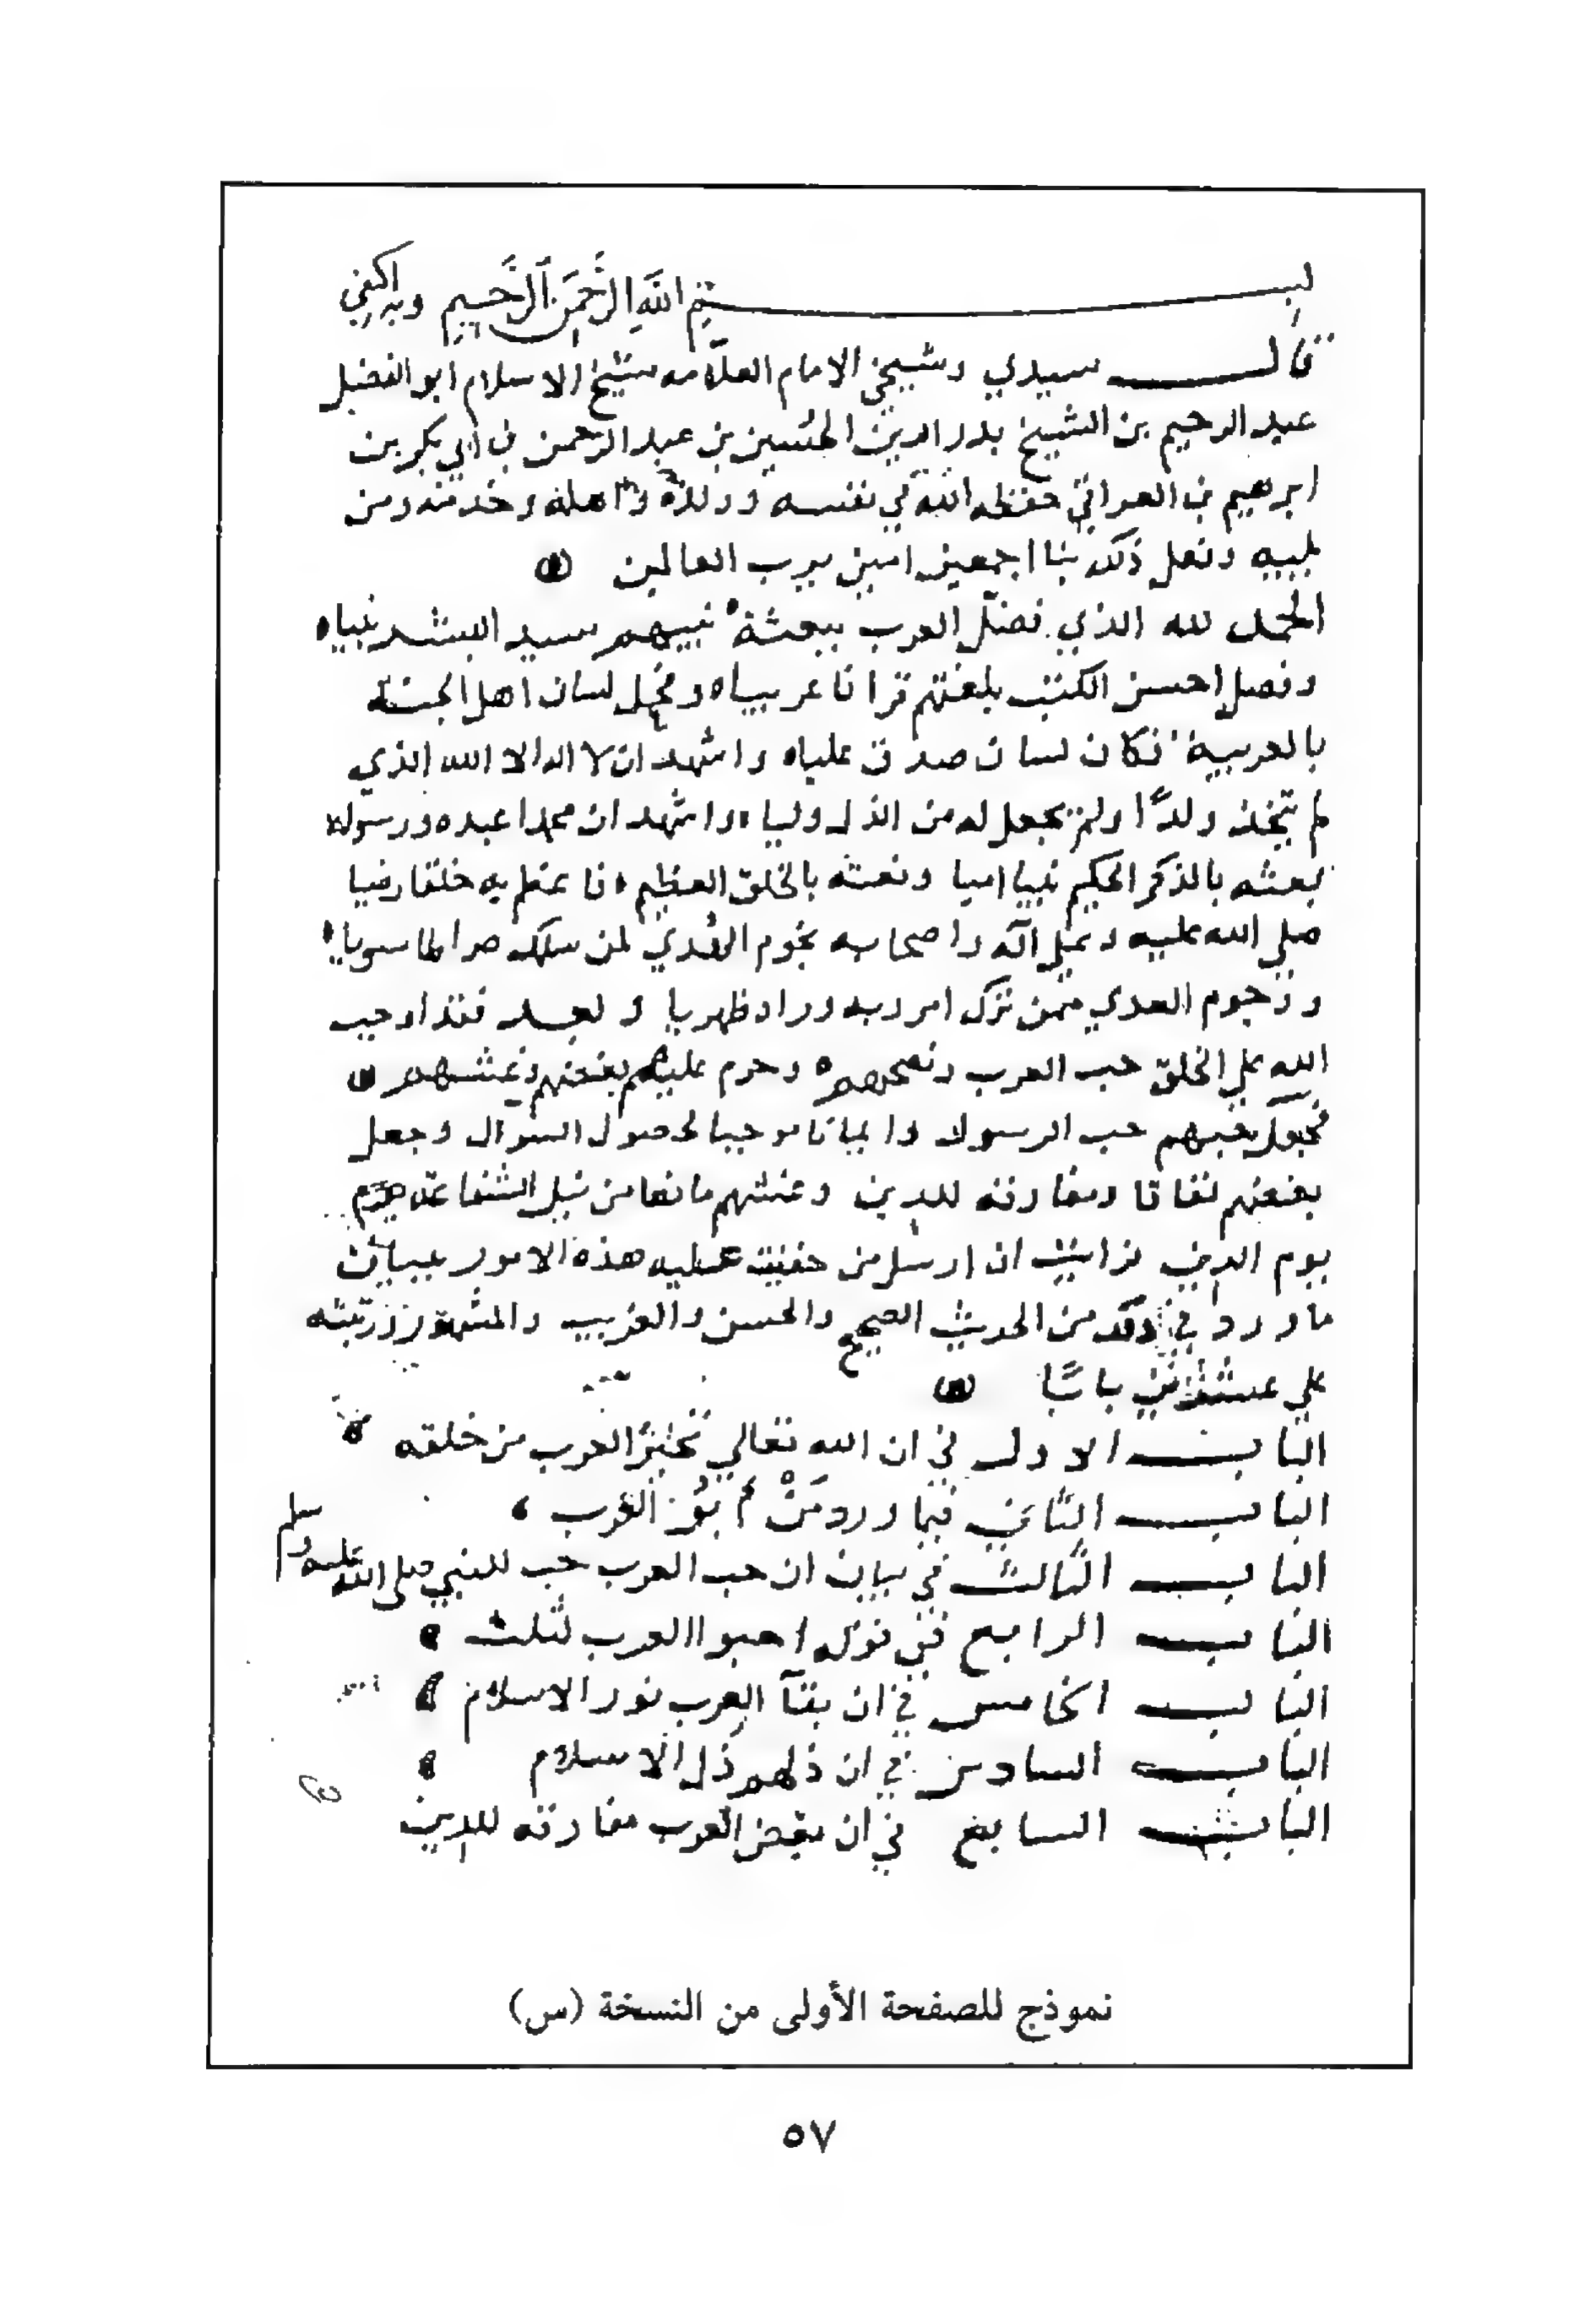 بسم الله الرحمن الرحيم وبه اكتفي
قال سيدي وشيخي الامام العلامه شيخ الاسلام ابو الفضل
عبد الرحيم بن الشيخ بدر الدين الحسين بن عبد الرحمن بن أبي بكر بن
ابرهيم بن العراقي حفظه الله في نفسه وولده واهله وخدمته ومن
يليه وفعل ذلك بنا اجمعين امين يرب العالمين
الحمد لله الذي فضل العرب ببعثة نبيهم سيد البشر نبياه
وفصل احسن الكتب بلغتهم قرانا عربياه وجعل لسان اهل الجنة
بالعربية فكان لسان صدق علياه واشهد ان لا اله الا الله الذي
لم يتخذ ولدًا ولم يجعل له من الذل وليا واشهد ان محمدا عبده ورسوله
بعثه بالذكر الحكيم نبيا اميا ونعته بالخلق العظيم فاعظم به خلقا رضيا
صلي الله عليه وعلى آله واصحابه نجوم الهدي لمن سلك صراطا سويا
ورجوم العدي ممن ترك امر ربه وراه ظهريا وبعد فقد اوجب
الله على الخلق حب العرب ونصحهم وحرم عليهم بغضهم وغشهم
فجعل حبهم حب الرسول وايمانا موجبا لحصول السوال وجعل
بغضهم نفاقا ومفارقه للدين وغشهم مانعا من نيل الشفاعة
يوم الدين فرايت ان ارسل من خفيت عليه هذه الامور ببيان
ما ورد في ذلك من الحديث الصحيح والحسن والغريب والمشهور ورتبته
على عشرين بابًا
الباب الاول في ان الله تعالي تخير العرب من خلقه
الباب الثاني فيما ورد مَنْ أبو العرب
الباب الثالث في بيان ان حب العرب حب للنبي صلى الله عليه وسلم
الباب الرابع في قوله احبوا العرب لثلث
الباب الخامس في ان بقآ العرب نور الاسلام
الباب السادس في ان ذلهم ذل الاسلام
الباب السابع في ان بغض العرب مفارقه للدين
نموذج للصفحة الأولى من النسخة (س)
٥٧